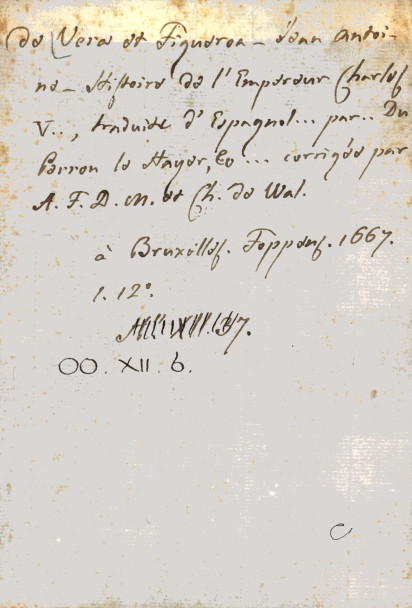 de Vera et Figueroa - Jean Antoi-
ne - Histoire de l'Empereur Charles
V.., traduite d'Espagnol... par.. Du
Perron le Hayer, &c ... corrigée par
A. F. D. M. et Ch. de Wal.
à Bruxelles. Foppens. 1667.
1. 12°.
OO. XII. 6.
C